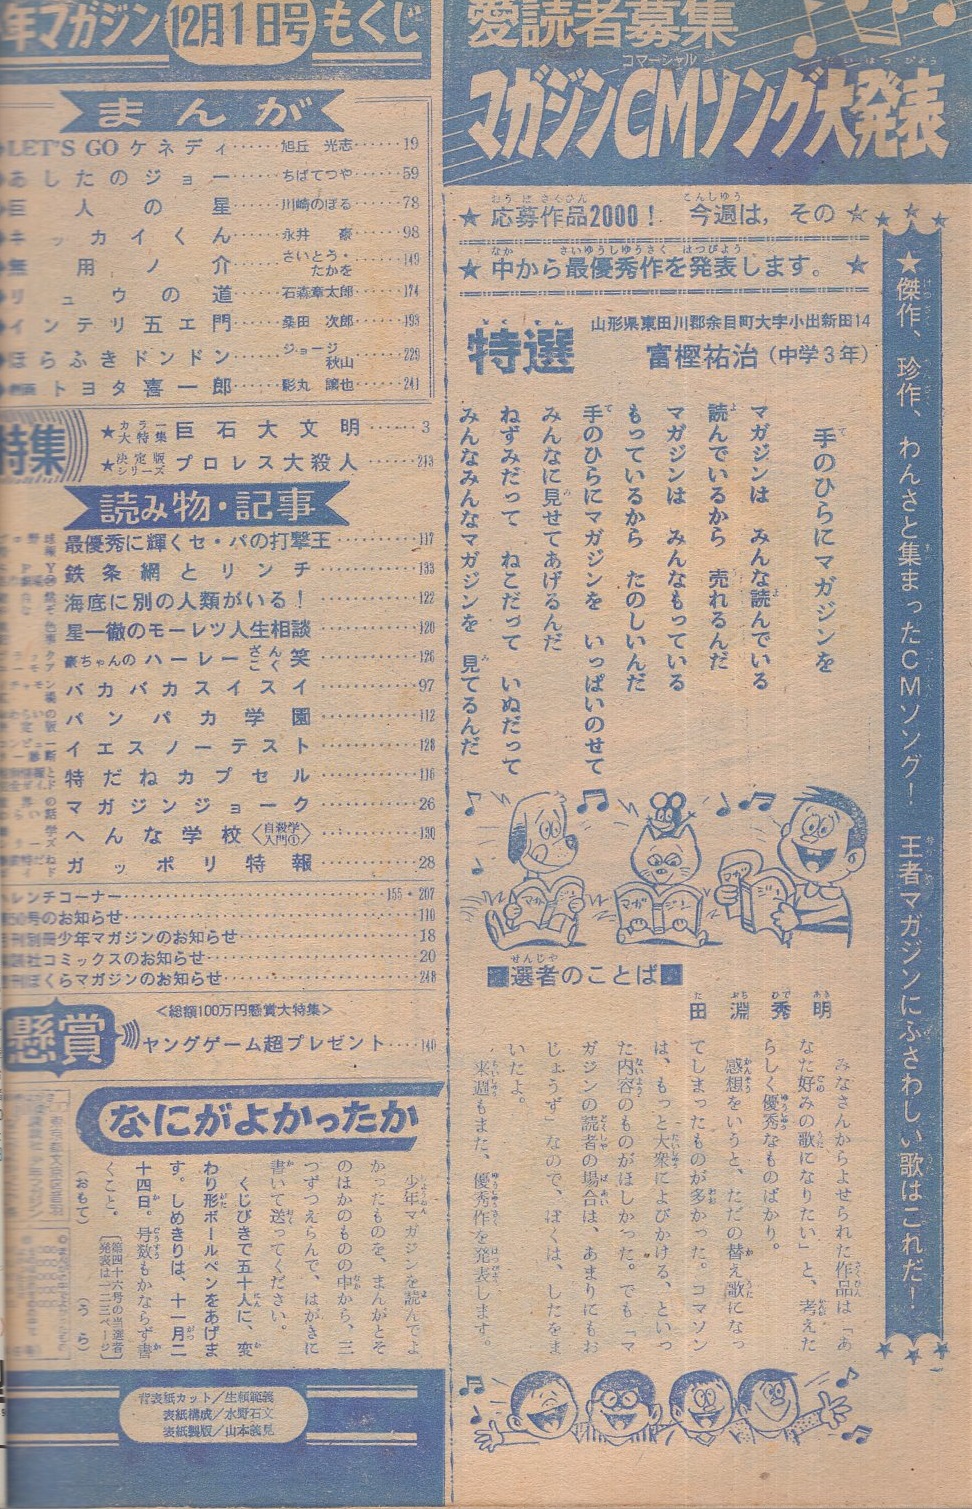 年マガジン 12月1日号 もくじ
まんが
LET'S GO ケネディ……旭丘 光志……19
あしたのジョー……ちばてつや……59
巨人の星……川崎のぼる……78
キッカイくん……永井 豪……98
無用ノ介……さいとう・たかを……149
リュウの道……石森章太郎……174
インテリ五エ門……桑田 次郎……193
ほらふきドンドン……ジョージ秋山……229
トヨタ喜一郎……影丸 譲也……241
特集
★カラー大特集 巨石大文明……3
★決定版シリーズ プロレス大殺人……213
読み物・記事
最優秀に輝くセ・パの打撃王……117
鉄条網とリンチ……133
海底に別の人類がいる!……122
星一徹のモーレツ人生相談……120
豪ちゃんのハーレーざんこく笑……126
バカバカスイスイ……97
パンパカ学園……112
イエスノーテスト……128
特だねカプセル……116
マガジンジョーク……26
へんな学校〈自殺学入門①〉……130
ガッポリ特報……28
レンチコーナー……155・207
第50号のお知らせ……110
月刊別冊少年マガジンのお知らせ……18
講談社コミックスのお知らせ……20
月刊ぼくらマガジンのお知らせ……248
懸賞
<総額100万円懸賞大特集>
ヤングゲーム超プレゼント……140
なにがよかったか
少年マガジンを読んでよ
かったものを、まんがとそ
のほかのもの中から、三
つずつえらんで、はがきに
書いて送ってください。
くじびきで五十人に、変
わり形ボールペンをあげま
す。しめきりは、十一月二
十四日。号数もかならず書
くこと。
〔第四十六号の当選者発表は一二三ページ〕
(おもて)
(うら)
背表紙カット/生頼範義
表紙構成/水野石文
表紙製版/山本義見
愛読者募集
マガジンCMソング大発表
コマーシャル
だいはっぴょう
★応募作品2000! 今週は,その☆
★中から最優秀作を発表します。☆
特選
山形県東田川郡余目町大字小出新田14
富樫祐治(中学3年)
★傑作、珍作、わんさと集まったCMソング! 王者マガジンにふさわしい歌はこれだ!
手のひらにマガジンを
マガジンは みんな読んでいる
読んでいるから 売れるんだ
マガジンは みんなもっている
もっているから たのしいんだ
手のひらにマガジンを いっぱいのせて
みんなに見せてあげるんだ
ねずみだって ねこだって いぬだって
みんなみんなマガジンを 見てるんだ
マガジン
マガジン
マガジン
■選者のことば■
田淵秀明
みなさんからよせられた作品は「あ
なた好みの歌になりたい」と、考えた
らしく優秀なものばかり。
感想をいうと、ただの替え歌になっ
てしまったものが多かった。コマソン
は、もっと大衆によびかける、といっ
た内容のものがほしかった。でも「マ
ガジンの読者の場合は、あまりにもお
じょうず」なので、ぼくは、したをま
いたよ。
来週もまた、優秀作を発表します。